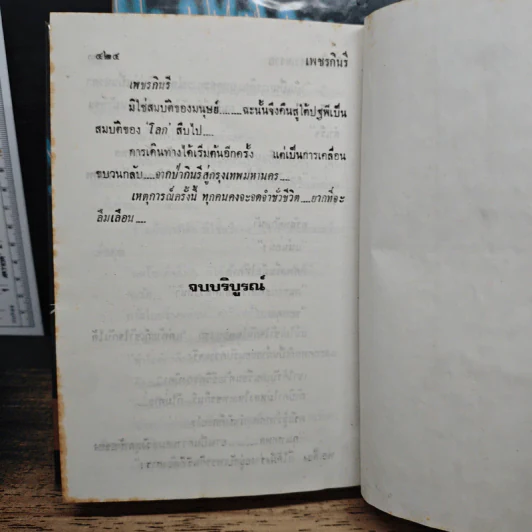 ๔๒๔ เพชรกินรี
เพชรกินรี
มิใช่สมบัติของมนุษย์........ฉะนั้นจึงคืนสู่ใต้ปฐพีเป็น
สมบัติของ 'โลก' สืบไป....
การเดินทางได้เริ่มต้นอีกครั้ง แต่เป็นการเคลื่อน
ขบวนกลับ....จากป่ากินรีสู่กรุงเทพมหานคร....
เหตุการณ์ครั้งนี้ ทุกคนคงจะจดจำชั่วชีวิต....ยากที่จะ
ลืมเลือน....
จบบริบูรณ์